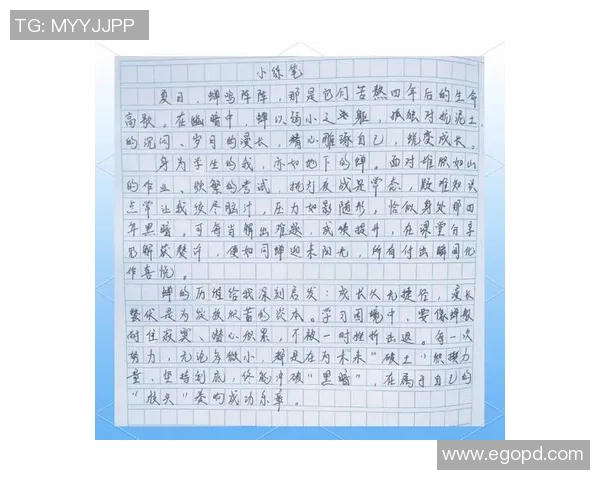 TG: MYYJJPP
小练笔
夏日，蝉鸣阵阵，那是它们苦熬四年后的生命
高歌。在幽暗中，蝉以弱小之躯，孤独对抗泥土
的沉闷、岁月的漫长，精心雕琢自己，蜕变成长。
身为学生的我，亦如地下的蝉。面对堆积如山
的作业、频繁的考试，挑灯夜战是常态，疑难知识
点常让我绞尽脑汁，压力如影随形，恰似身处那四
年黑暗。可每当解出难题，成绩提升，在课堂分享
见解获赞许，便如同蝉迎来阳光，所有付出瞬间化
作喜悦。
蝉的历程给我深刻启发：成长从无捷径，漫长
蛰伏是为发放积蓄的资本。学习困境中，要像蝉般
耐住寂寞、潜心积累，不被一时挫折击退。每一次
努力，无论多微小，都是在为未来“破土”积攒力
量，坚持到底，终能冲破“黑暗”，在属于自己的
“枝头”奏响成功乐章。
www.egopd.com